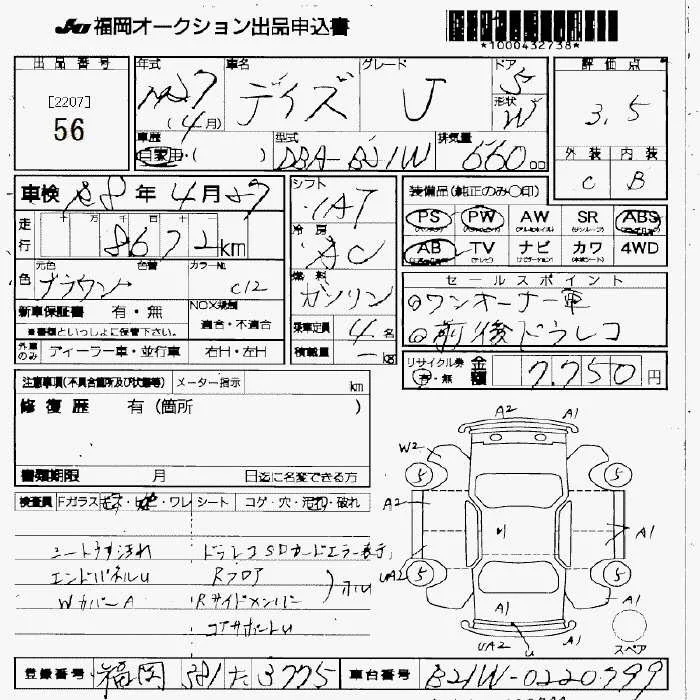 JU 福岡オークション出品申込書
*1000432738*
出品番号
[2207]
56
年式 H27 (4月)
車名 デイズ
グレード J
ドア 5
形状 W
評価点
3.5
外装 内装
C B
車歴 自家用・( )
型式 DBA-B21W
排気量 660 00
車検 R8年4月27
走行 十 万 千 百 十
8672 km
元色 色替 カラーNo
色 ブラウン C12
新車保証書 有・無
※書類といっしょに保管下さい。
NOX規制
適合・不適合
外車のみ ディーラー車・並行車 右H・左H
シフト
IAT
冷房
AC
燃料
ガソリン
乗車定員 4名
積載量 - kg
装備品(純正のみ○印)
PS PW AW SR ABS
AB TV ナビ カワ 4WD
セールスポイント
ワンオーナー車
前後ドラレコ
リサイクル券 有・無
金額 7,750円
注意事項(不具合箇所及び状態等) メーター指示 km
修復歴 有(箇所 )
書類期限 月 日迄に名変できる方
検査員 Fガラス ・ワレ シート コゲ・穴・汚れ・破れ
シートうす汚れ ドラレコSDカードエラー表示
エンドパネルU Rフロア
WカバーA Rサイドメンバー
コアサポートU
A2 A1
W2
5 5
A2
A1
UA2
5 5
A1 A1
UA2 U A1
スペア
登録番号 福岡 581 た 3775
車台番号 B21W-0220799